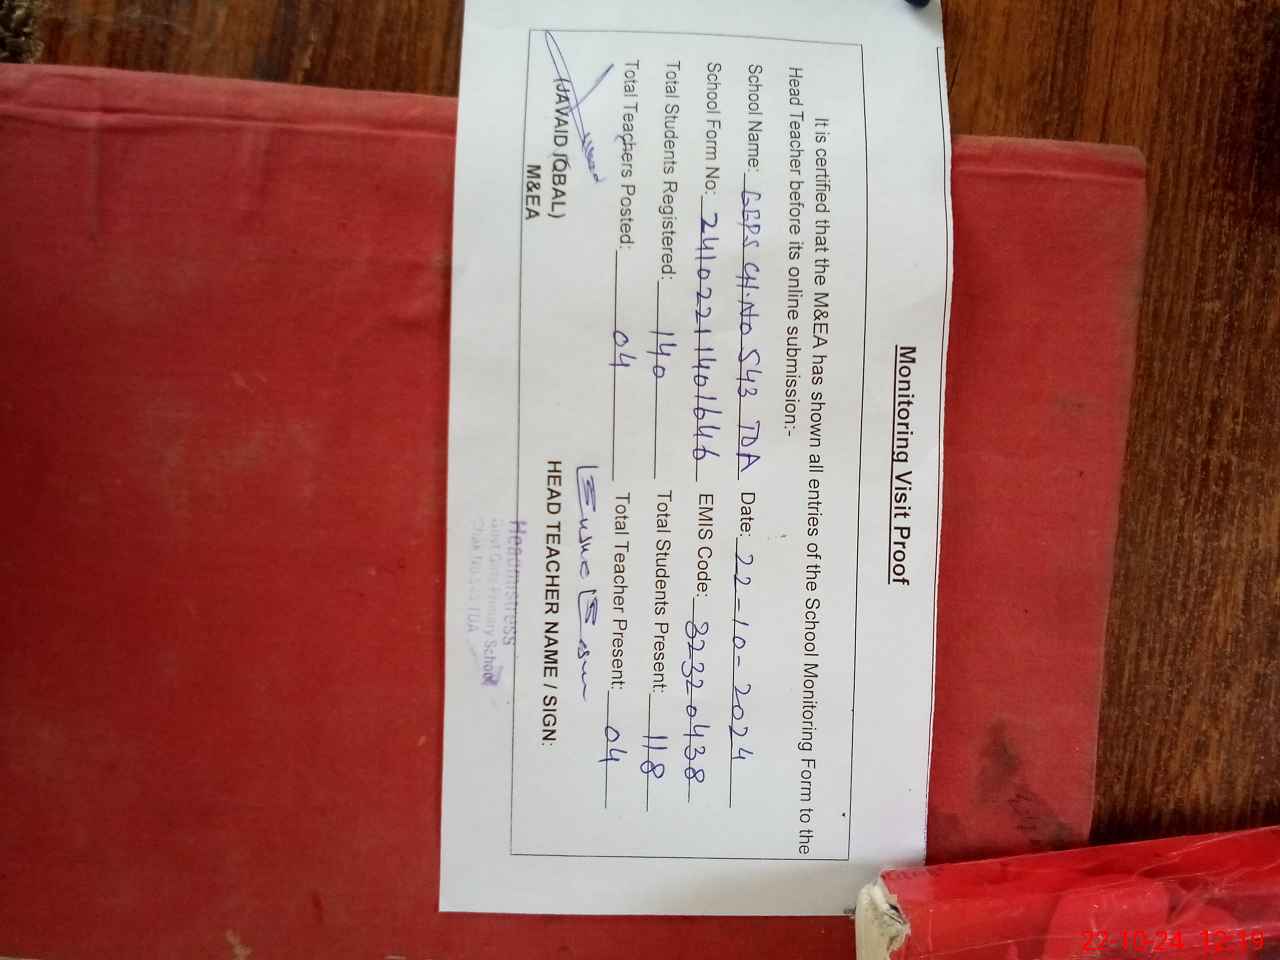 Monitoring Visit Proof
It is certified that the M&EA has shown all entries of the School Monitoring Form to the
Head Teacher before its online submission:-
School Name: GGPS CH.No 543 TDA Date: 22-10-2024
School Form No: 2410221401646 EMIS Code: 32320438
Total Students Registered: 140 Total Students Present: 118
Total Teachers Posted: 04 Total Teacher Present: 04
(JAVAID IQBAL)
M&EA
HEAD TEACHER NAME / SIGN:
Headmistress
Govt Girls Primary School
Chak No 543 TDA
22-10-24 12:19